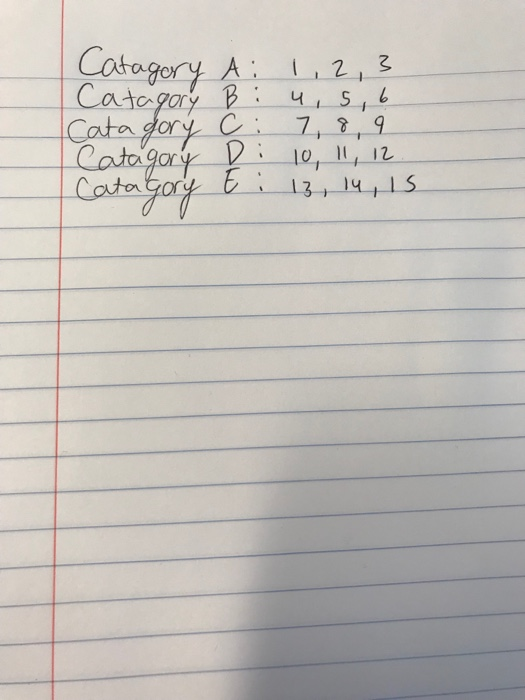 Catagory A: 1, 2, 3
Catagory B: 4, 5, 6
Catagory C: 7, 8, 9
Catagory D: 10, 11, 12
Catagory E: 13, 14, 15